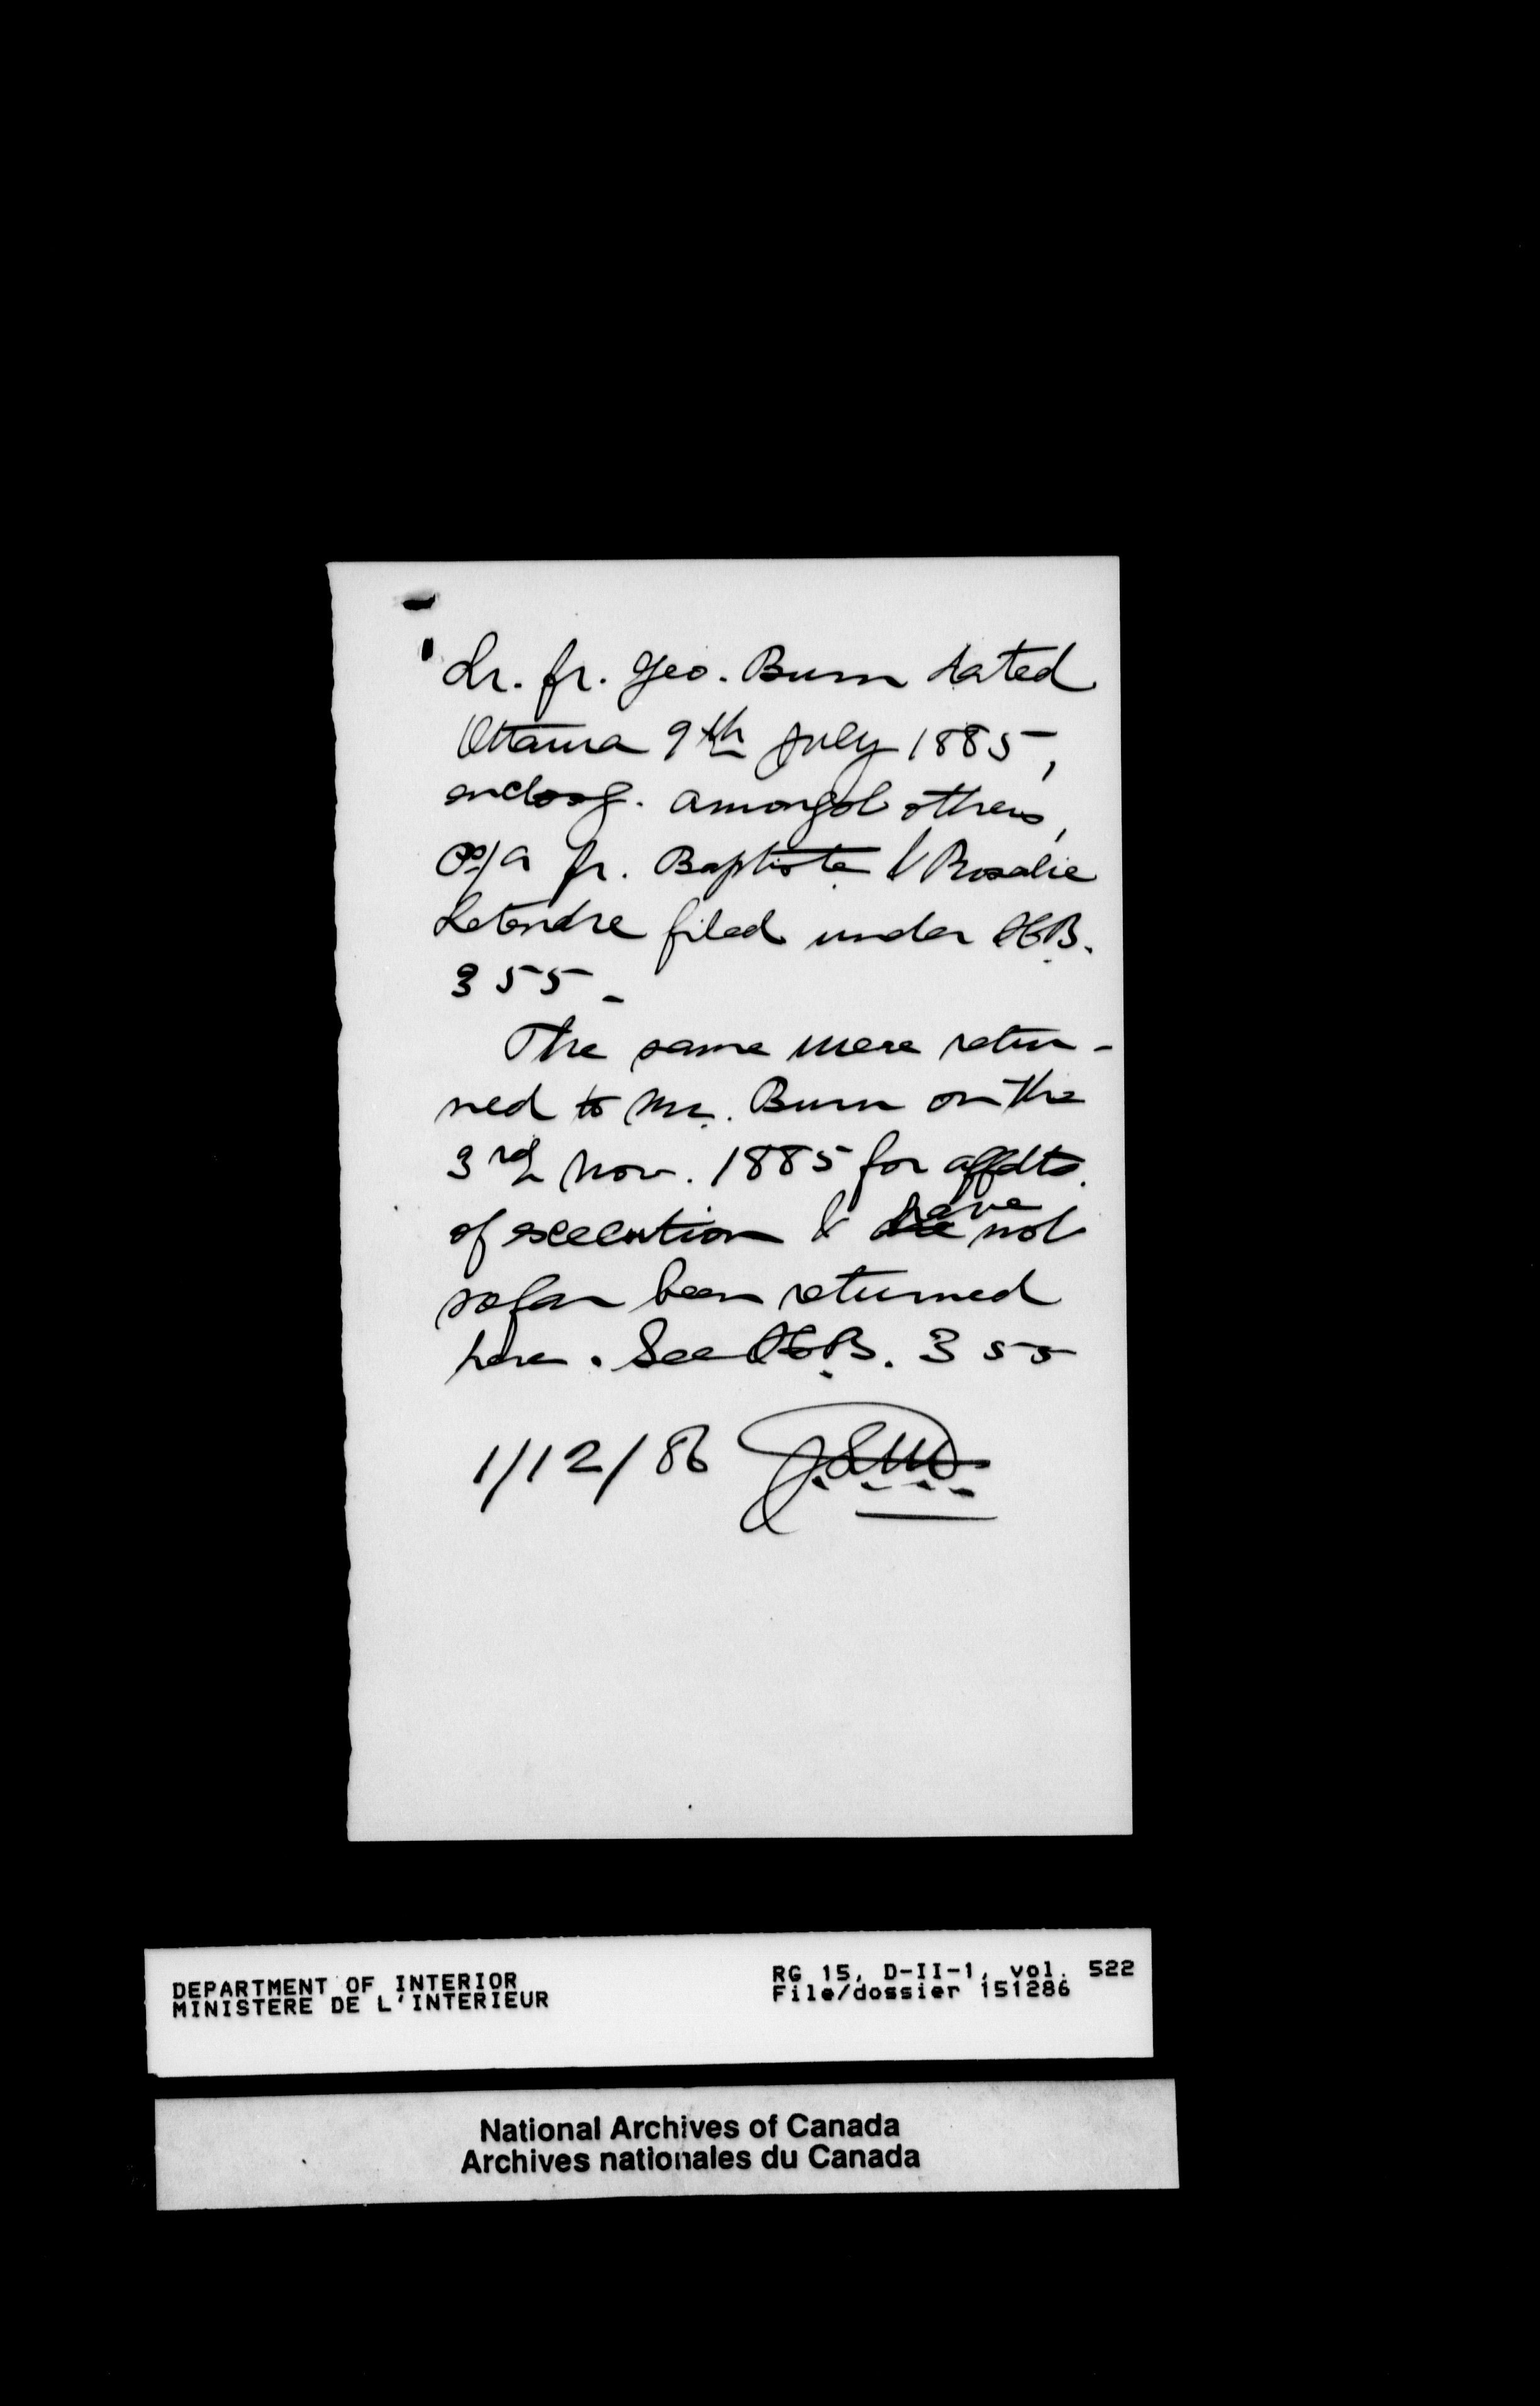 Lr. fr. Geo. Burn dated
Ottawa 9th July 1885,
enclosg. amongst others,
Ps/A fr. Baptiste & Rosalie
Letendre filed under H.B.
355-
The same were retur-
ned to Mr. Burn on the
3rd Nov. 1885 for affdts.
of execution & have not
so far been returned
here. See H.B. 355
1/12/86
DEPARTMENT OF INTERIOR
MINISTERE DE L'INTERIEUR
RG 15, D-II-1, vol. 522
File/dossier 151286
National Archives of Canada
Archives nationales du Canada